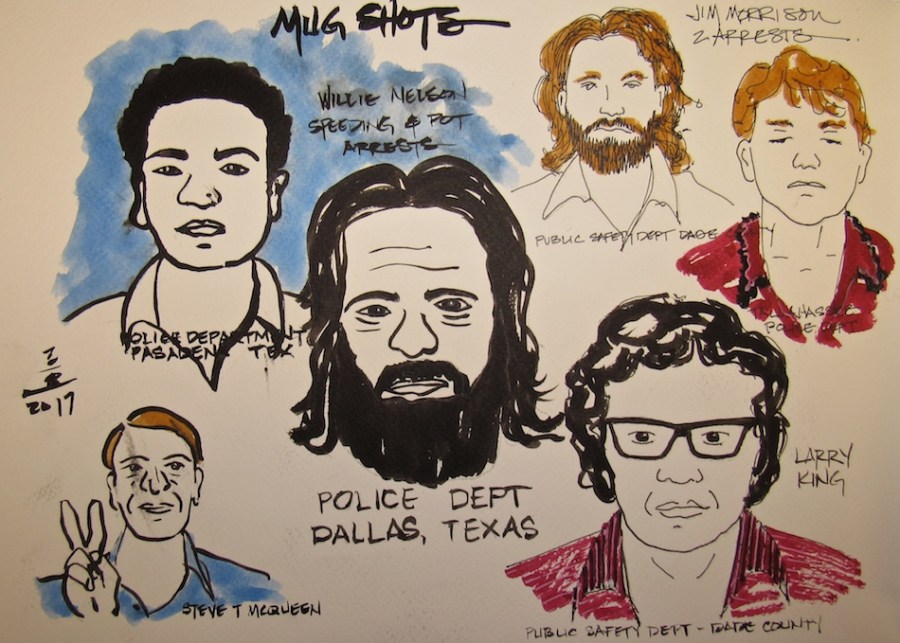 MUG SHOTS
JIM MORRISON
2 ARRESTS
WILLIE NELSON
SPEEDING & POT
ARRESTS
PUBLIC SAFETY DEPT DADE
POLICE DEPT
POLICE DEPARTMENT
PASADENA TEX
2017
LARRY
KING
POLICE DEPT
DALLAS, TEXAS
STEVE T MCQUEEN
PUBLIC SAFETY DEPT - DADE COUNTY